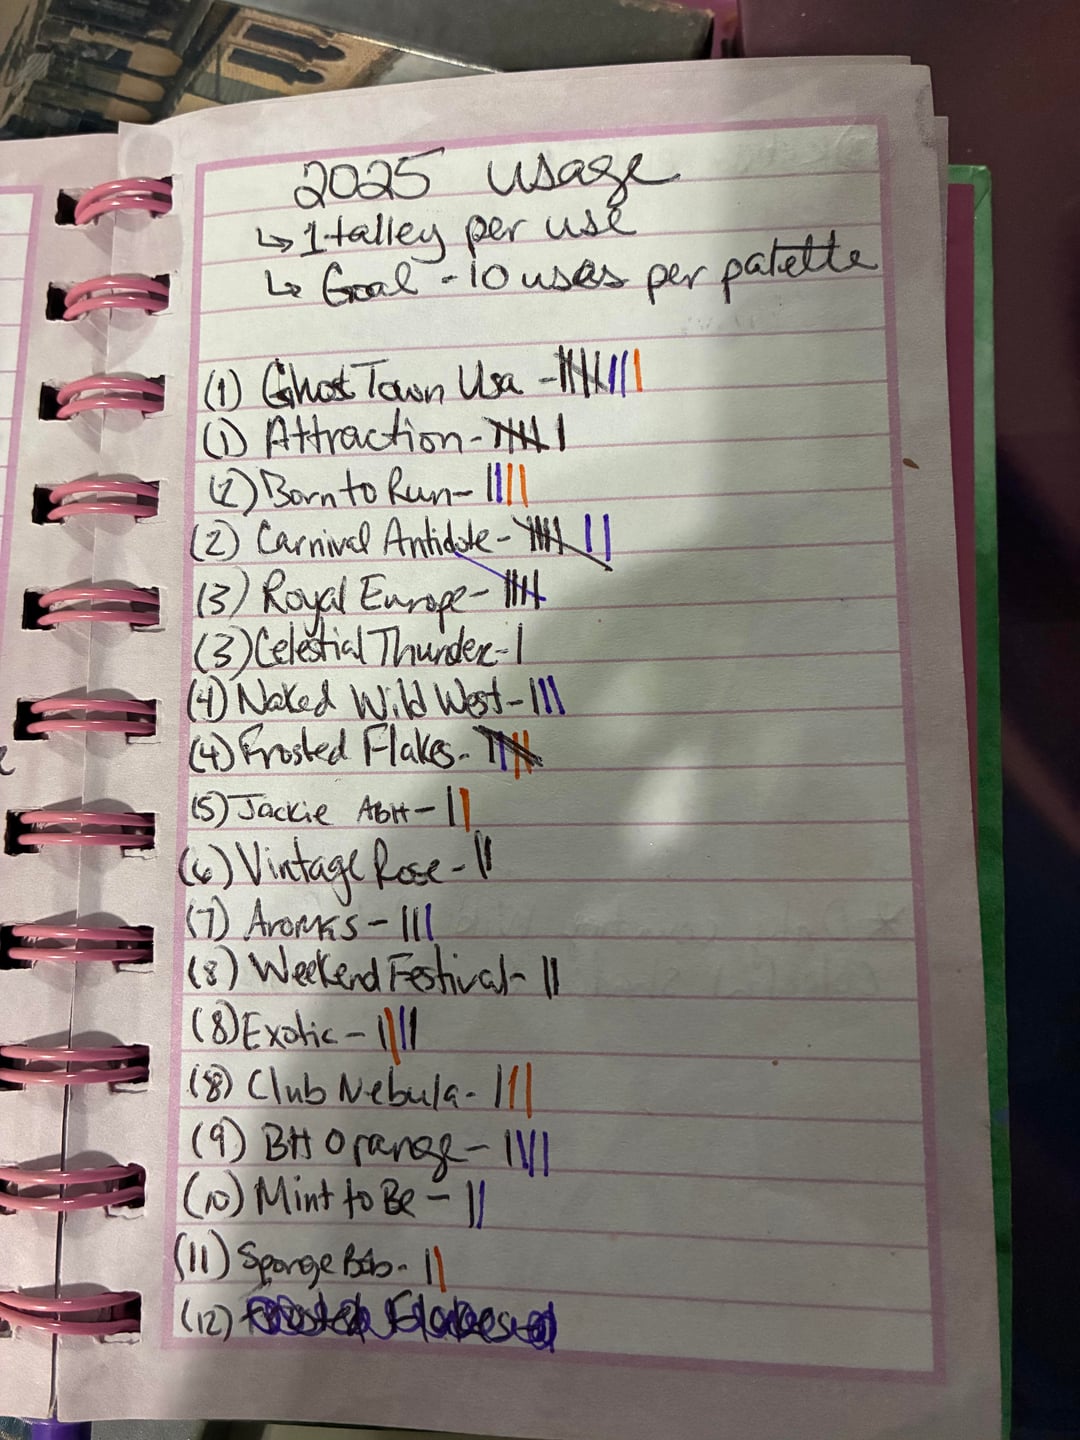 2025 usage
↳ 1 talley per use
↳ Goal - 10 uses per palette
(1) Ghost Town Usa - |||| |||| 
(1) Attraction - |||| |
(2) Born to Run - ||||
(2) Carnival Antidote - |||| ||
(3) Royal Europe - ||||
(3) Celestial Thunder - |
(4) Naked Wild West - |||
(4) Frosted Flakes - ||||
(5) Jackie ABH - ||
(6) Vintage Rose - ||
(7) Aromas - |||
(8) Weekend Festival - ||
(8) Exotic - ||||
(8) Club Nebula - |||
(9) BH Orange - ||||
(10) Mint to Be - ||
(11) SpongeBob - ||
(12) Frosted Flakes